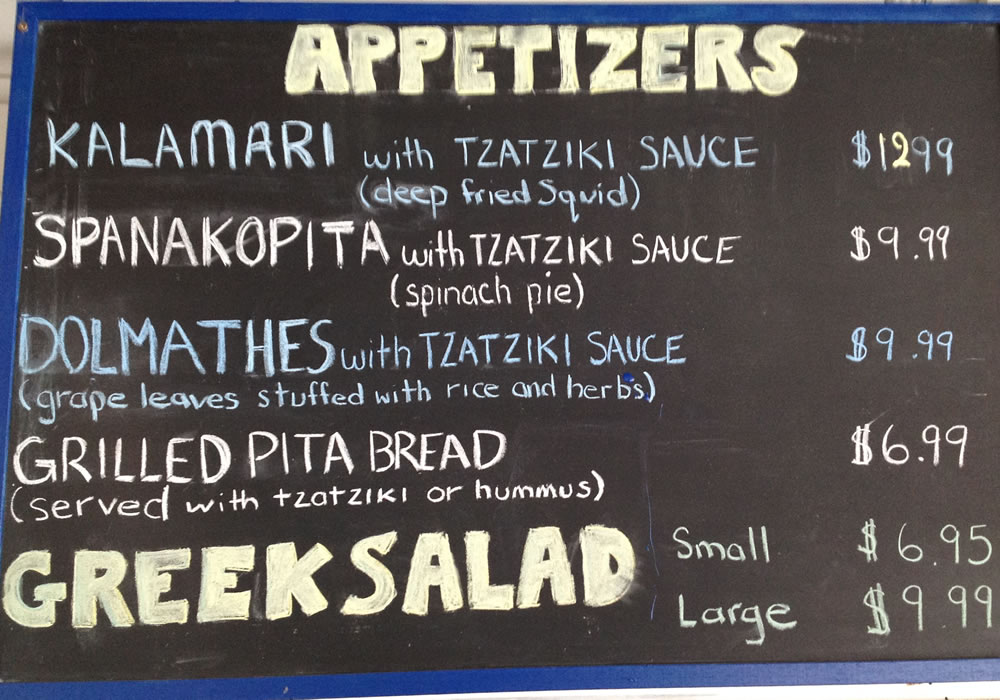 APPETIZERS
KALAMARI with TZATZIKI SAUCE $1299
(deep fried Squid)
SPANAKOPITA with TZATZIKI SAUCE $9.99
(spinach pie)
DOLMATHES with TZATZIKI SAUCE $9.99
(grape leaves stuffed with rice and herbs)
GRILLED PITA BREAD $6.99
(served with tzatziki or hummus)
GREEK SALAD Small $6.95
Large $9.99